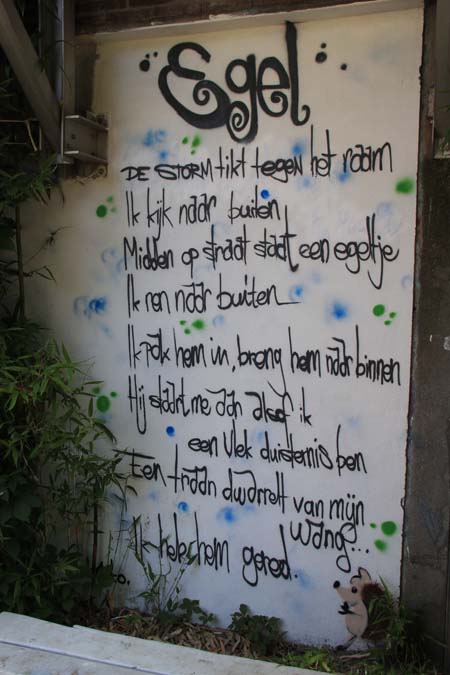 Egel
DE STORM tikt tegen het raam
Ik kijk naar buiten
Midden op straat staat een egeltje
Ik ren naar buiten
Ik pak hem in, breng hem naar binnen
Hij staart me aan alsof ik
een vlek duisternis ben
Een traan dwarrelt van mijn
wang...
Ik heb hem gered.